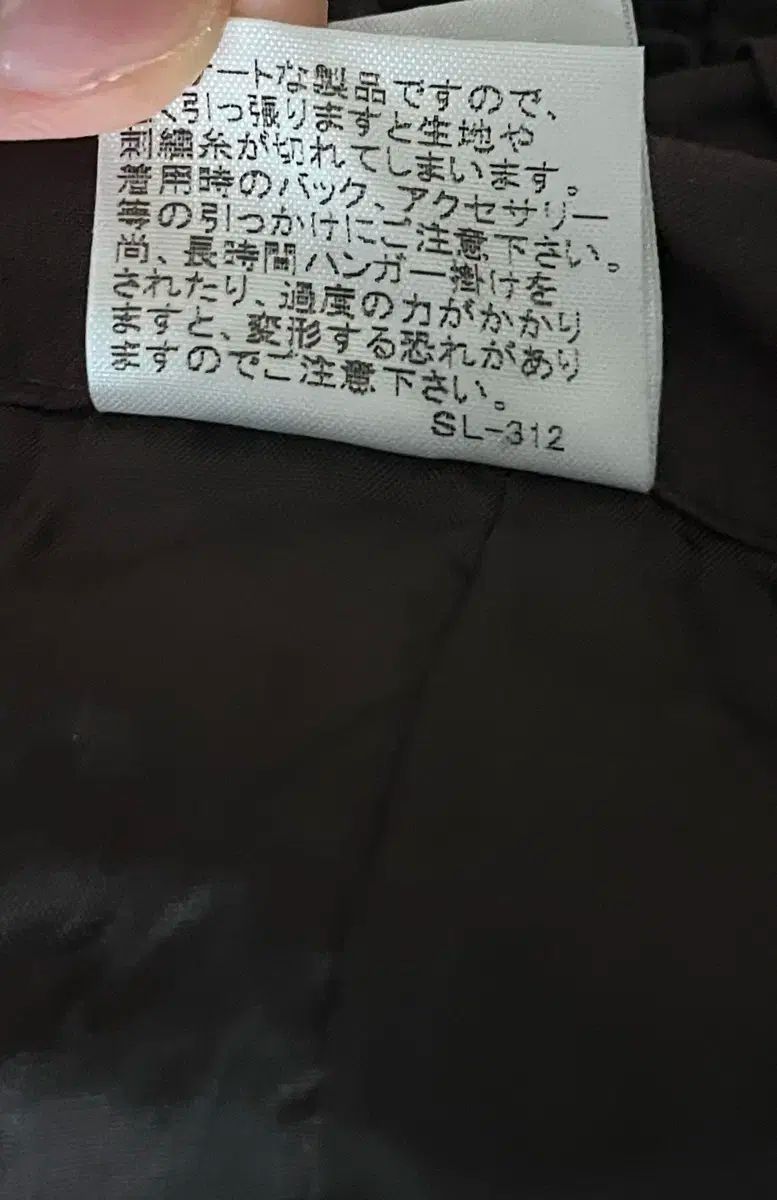 ートな製品ですので、
く引っ張りますと生地や
刺繍糸が切れてしまいます。
着用時のバック、アクセサリー
等の引っかけにご注意下さい。
尚、長時間ハンガー掛けを
されたり、過度の力がかかり
ますと、変形する恐れがあり
ますのでご注意下さい。
SL-312